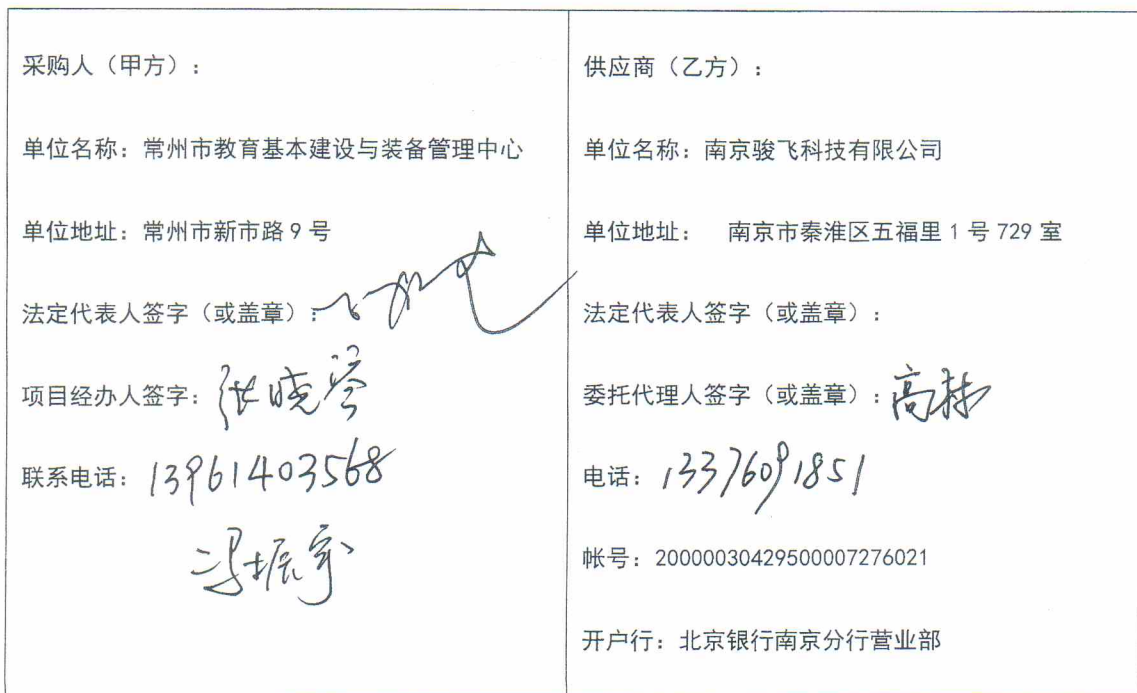 采购人（甲方）：
单位名称：常州市教育基本建设与装备管理中心
单位地址：常州市新市路9号
法定代表人签字（或盖章）：
项目经办人签字：张晓琴
联系电话：13961403568
冯振宇
供应商（乙方）：
单位名称：南京骏飞科技有限公司
单位地址： 南京市秦淮区五福里1号729室
法定代表人签字（或盖章）：
委托代理人签字（或盖章）：高栋
电话：13376091851
帐号：20000030429500007276021
开户行：北京银行南京分行营业部